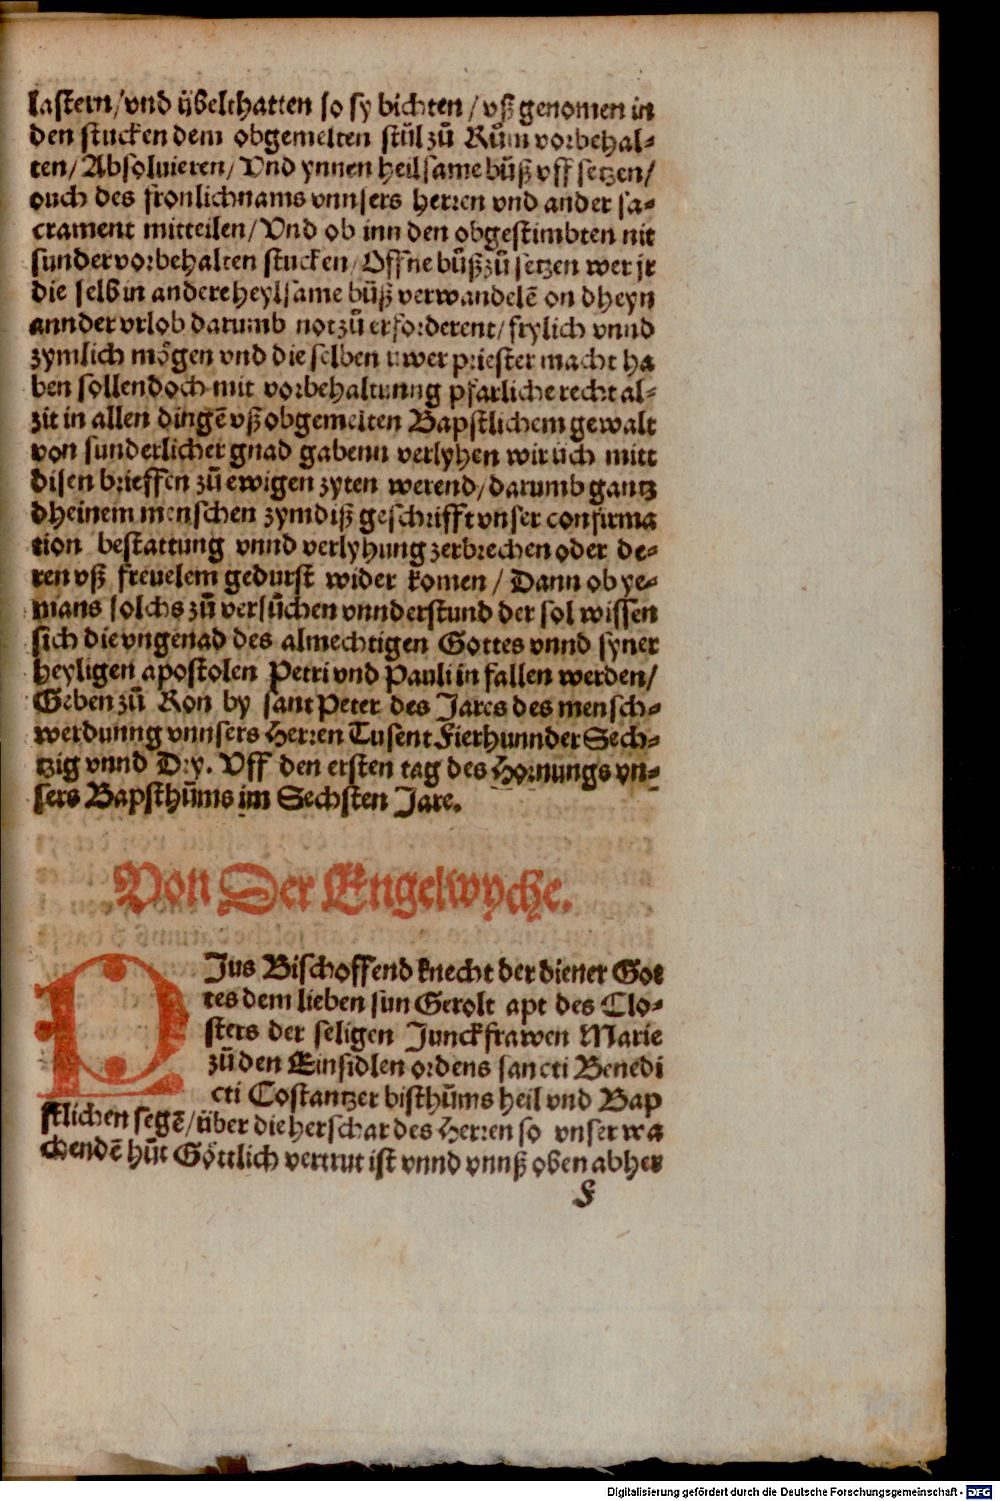 lastern/vnd übelthatten so sy bichten/vß genomen in
den stucken dem obgemelten stůl zů Rům vorbehal-
ten/Absoluieren/Vnd ynnen heilsame bůß vff setzen/
ouch des fronlichnams vnnsers herren vnd ander sa-
crament mitteilen/Vnd ob inn den obgestimbten nit
sunder vorbehalten stucken/Offne bůß zů setzen wer jr
die selb in andere heylsame bůß verwandelē on dheyn
annder vrlob darumb not zů erforderent/frylich vnnd
zymlich mögen vnd die selben uwer priester macht ha
ben sollen doch mit vorbehaltunng pfarliche recht al-
zit in allen dingē vß obgemelten Bapstlichem gewalt
von sunderlicher gnad gabenn verlyhen wir üch mitt
disen brieffen zů ewigen zyten werend/darumb gantz
dheinem menschen zym diß geschrifft vnser confirma
tion bestattung vnnd verlyhung zerbrechen oder de-
ren vß freuelem gedurst wider komen/Dann ob ye-
mans solchs zů versůchen vnnderstund der sol wissen
sich die vngenad des almechtigen Gottes vnnd syner
heyligen apostolen Petri vnd Pauli in fallen werden/
Geben zů Ron by sant Peter des Jares des mensch-
werdunng vnnsers Herren Tusent Fierhunnder Sech-
tzig vnnd Dry. Vff den ersten tag des Hornungs vn-
sers Bapsthůms im Sechsten Jare.
Von Der Engelwyche.
PJus Bischoff end knecht der diener Got
tes dem lieben sun Gerolt apt des Clo-
sters der seligen Junckfrawen Marie
zů den Einsidlen ordens sancti Benedi
cti Costantzer bisthůms heil vnd Bap
stlichen segē/über die herschar des Herren so vnser wa
chendē hůt Göttlich vertrut ist vnnd vnnß oben abher
F
Digitalisierung gefördert durch die Deutsche Forschungsgemeinschaft - DFG